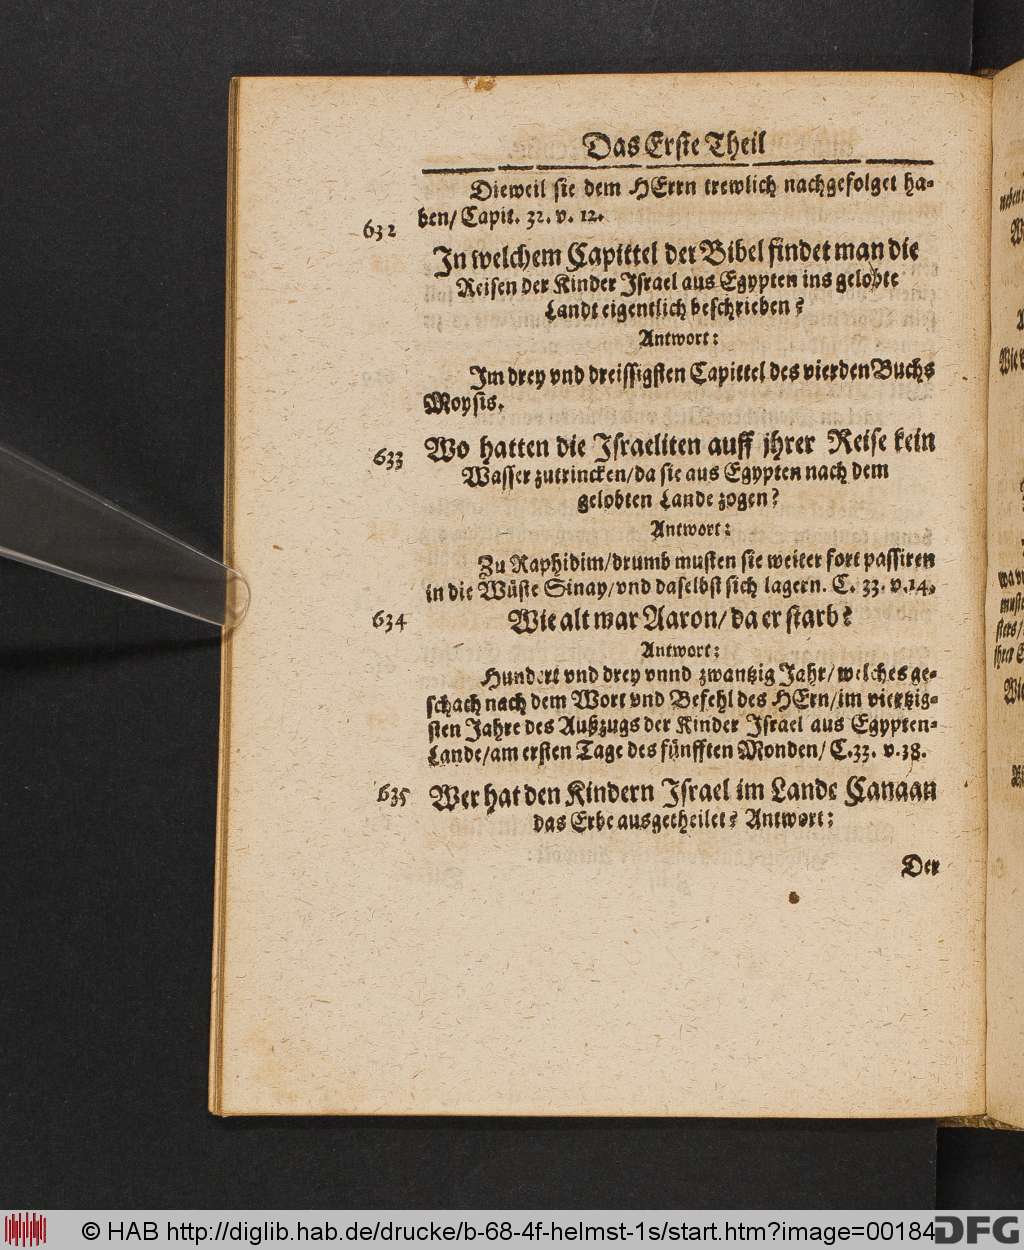 Das Erste Theil
Dieweil sie dem HErrn trewlich nachgefolget ha-
ben/ Capit. 32. v. 12.
632
In welchem Capittel der Bibel findet man die
Reisen der Kinder Israel aus Egypten ins gelobte
Landt eigentlich beschrieben?
Antwort:
Im drey vnd dreissigsten Capittel des vierden Buchs
Moysis.
633 Wo hatten die Israeliten auff jhrer Reise kein
Wasser zutrincken/da sie aus Egypten nach dem
gelobten Lande zogen?
Antwort:
Zu Raphidim/drumb musten sie weiter fort passiren
in die Wüste Sinay/vnd daselbst sich lagern. C. 33. v.14.
634 Wie alt war Aaron/da er starb?
Antwort:
Hundert vnd drey vnnd zwantzig Jahr/welches ge-
schach nach dem Wort vnd Befehl des HErn/im viertzig-
sten Jahre des Außzugs der Kinder Israel aus Egypten-
Lande/am ersten Tage des fünfften Monden/ C.33. v.38.
635 Wer hat den Kindern Israel im Lande Canaan
das Erbe ausgetheilet? Antwort:
Der
© HAB http://diglib.hab.de/drucke/b-68-4f-helmst-1s/start.htm?image=00184
DFG